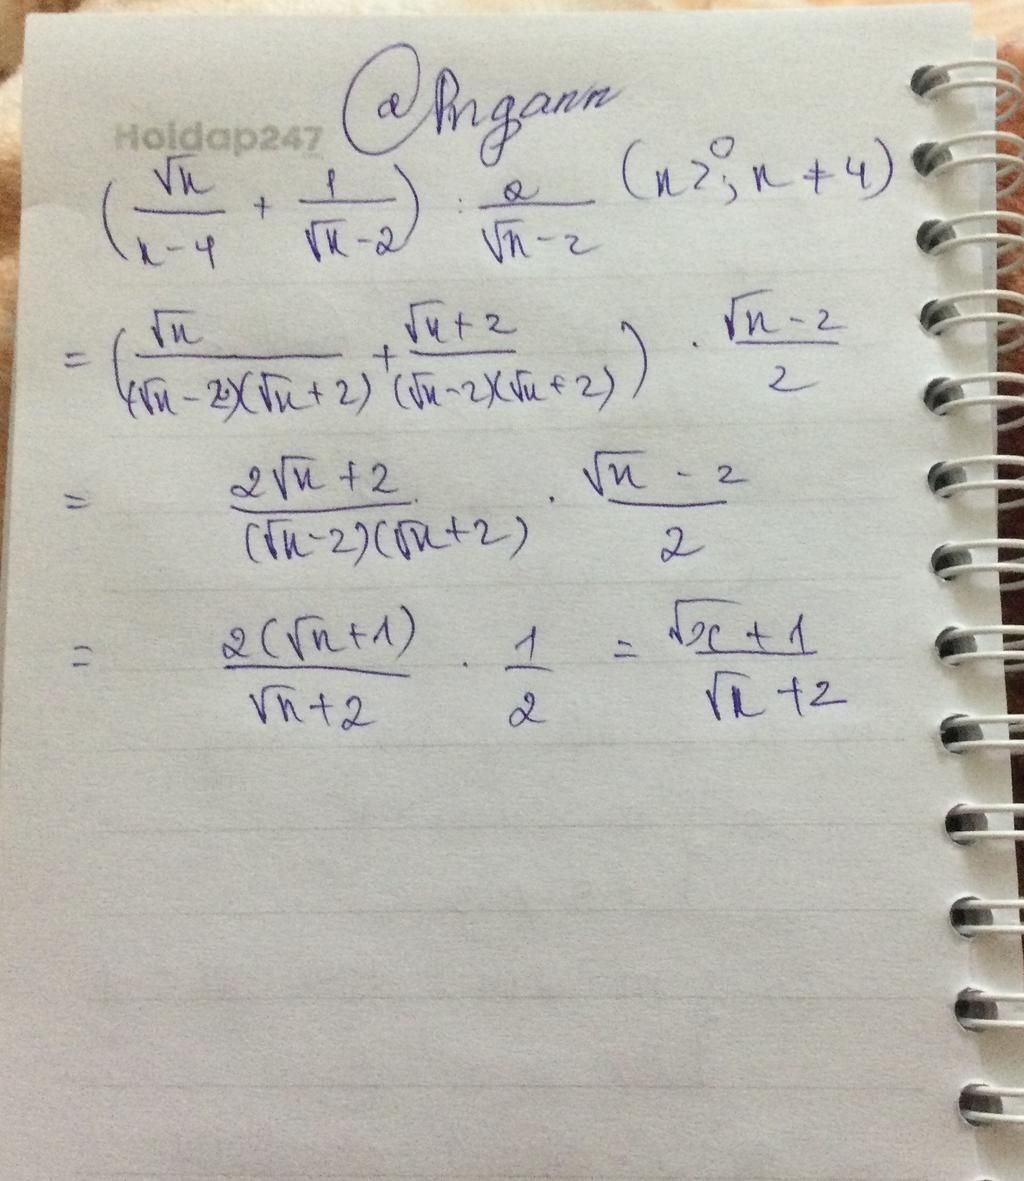 @Pngann
Hoidap247
(√x/(x-4) + 1/(√x-2)) : 2/(√x-2) (x≥0; x≠4)
= (√x/((√x-2)(√x+2)) + (√x+2)/((√x-2)(√x+2))) . (√x-2)/2
= (2√x+2)/((√x-2)(√x+2)) . (√x-2)/2
= 2(√x+1)/(√x+2) . 1/2 = (√x+1)/(√x+2)